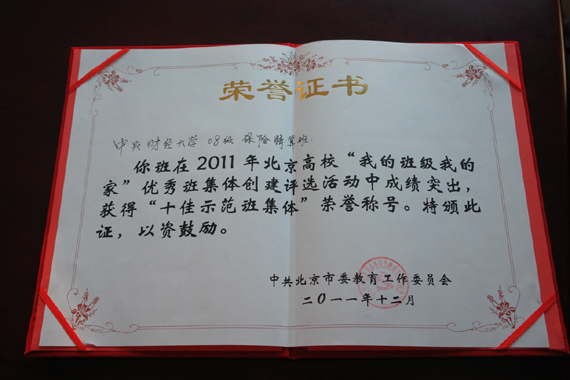 荣誉证书
中央财经大学 08级 保险精算班：
你班在 2011 年北京高校“我的班级我的
家”优秀班集体创建评选活动中成绩突出，
获得“十佳示范班集体”荣誉称号。特颁此
证，以资鼓励。
中共北京市委教育工作委员会
二〇一一年十二月